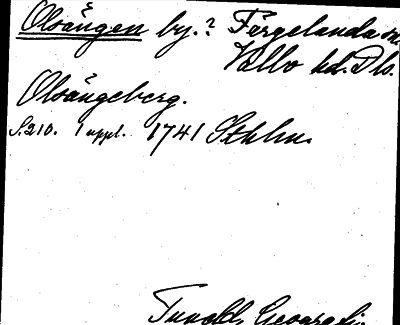 Olsängen by.? Färgelanda sn.
Valbo hd. Dls.
Olsängeberg.
S. 210. 1 uppl. 1741 Sthlm.
Tunelds Geografi